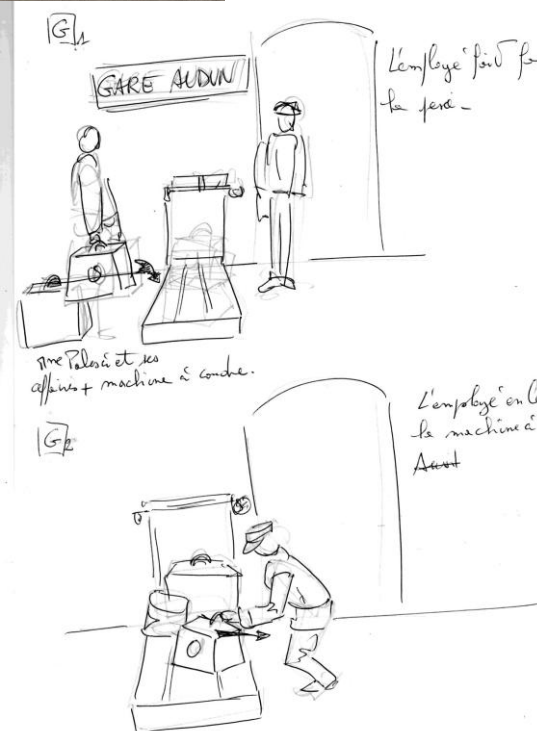 G1
GARE AUDUN
L'employé fait
la
Mme Palesci et ses
affaires + machine à coudre.
G2
L'employé en
la machine à